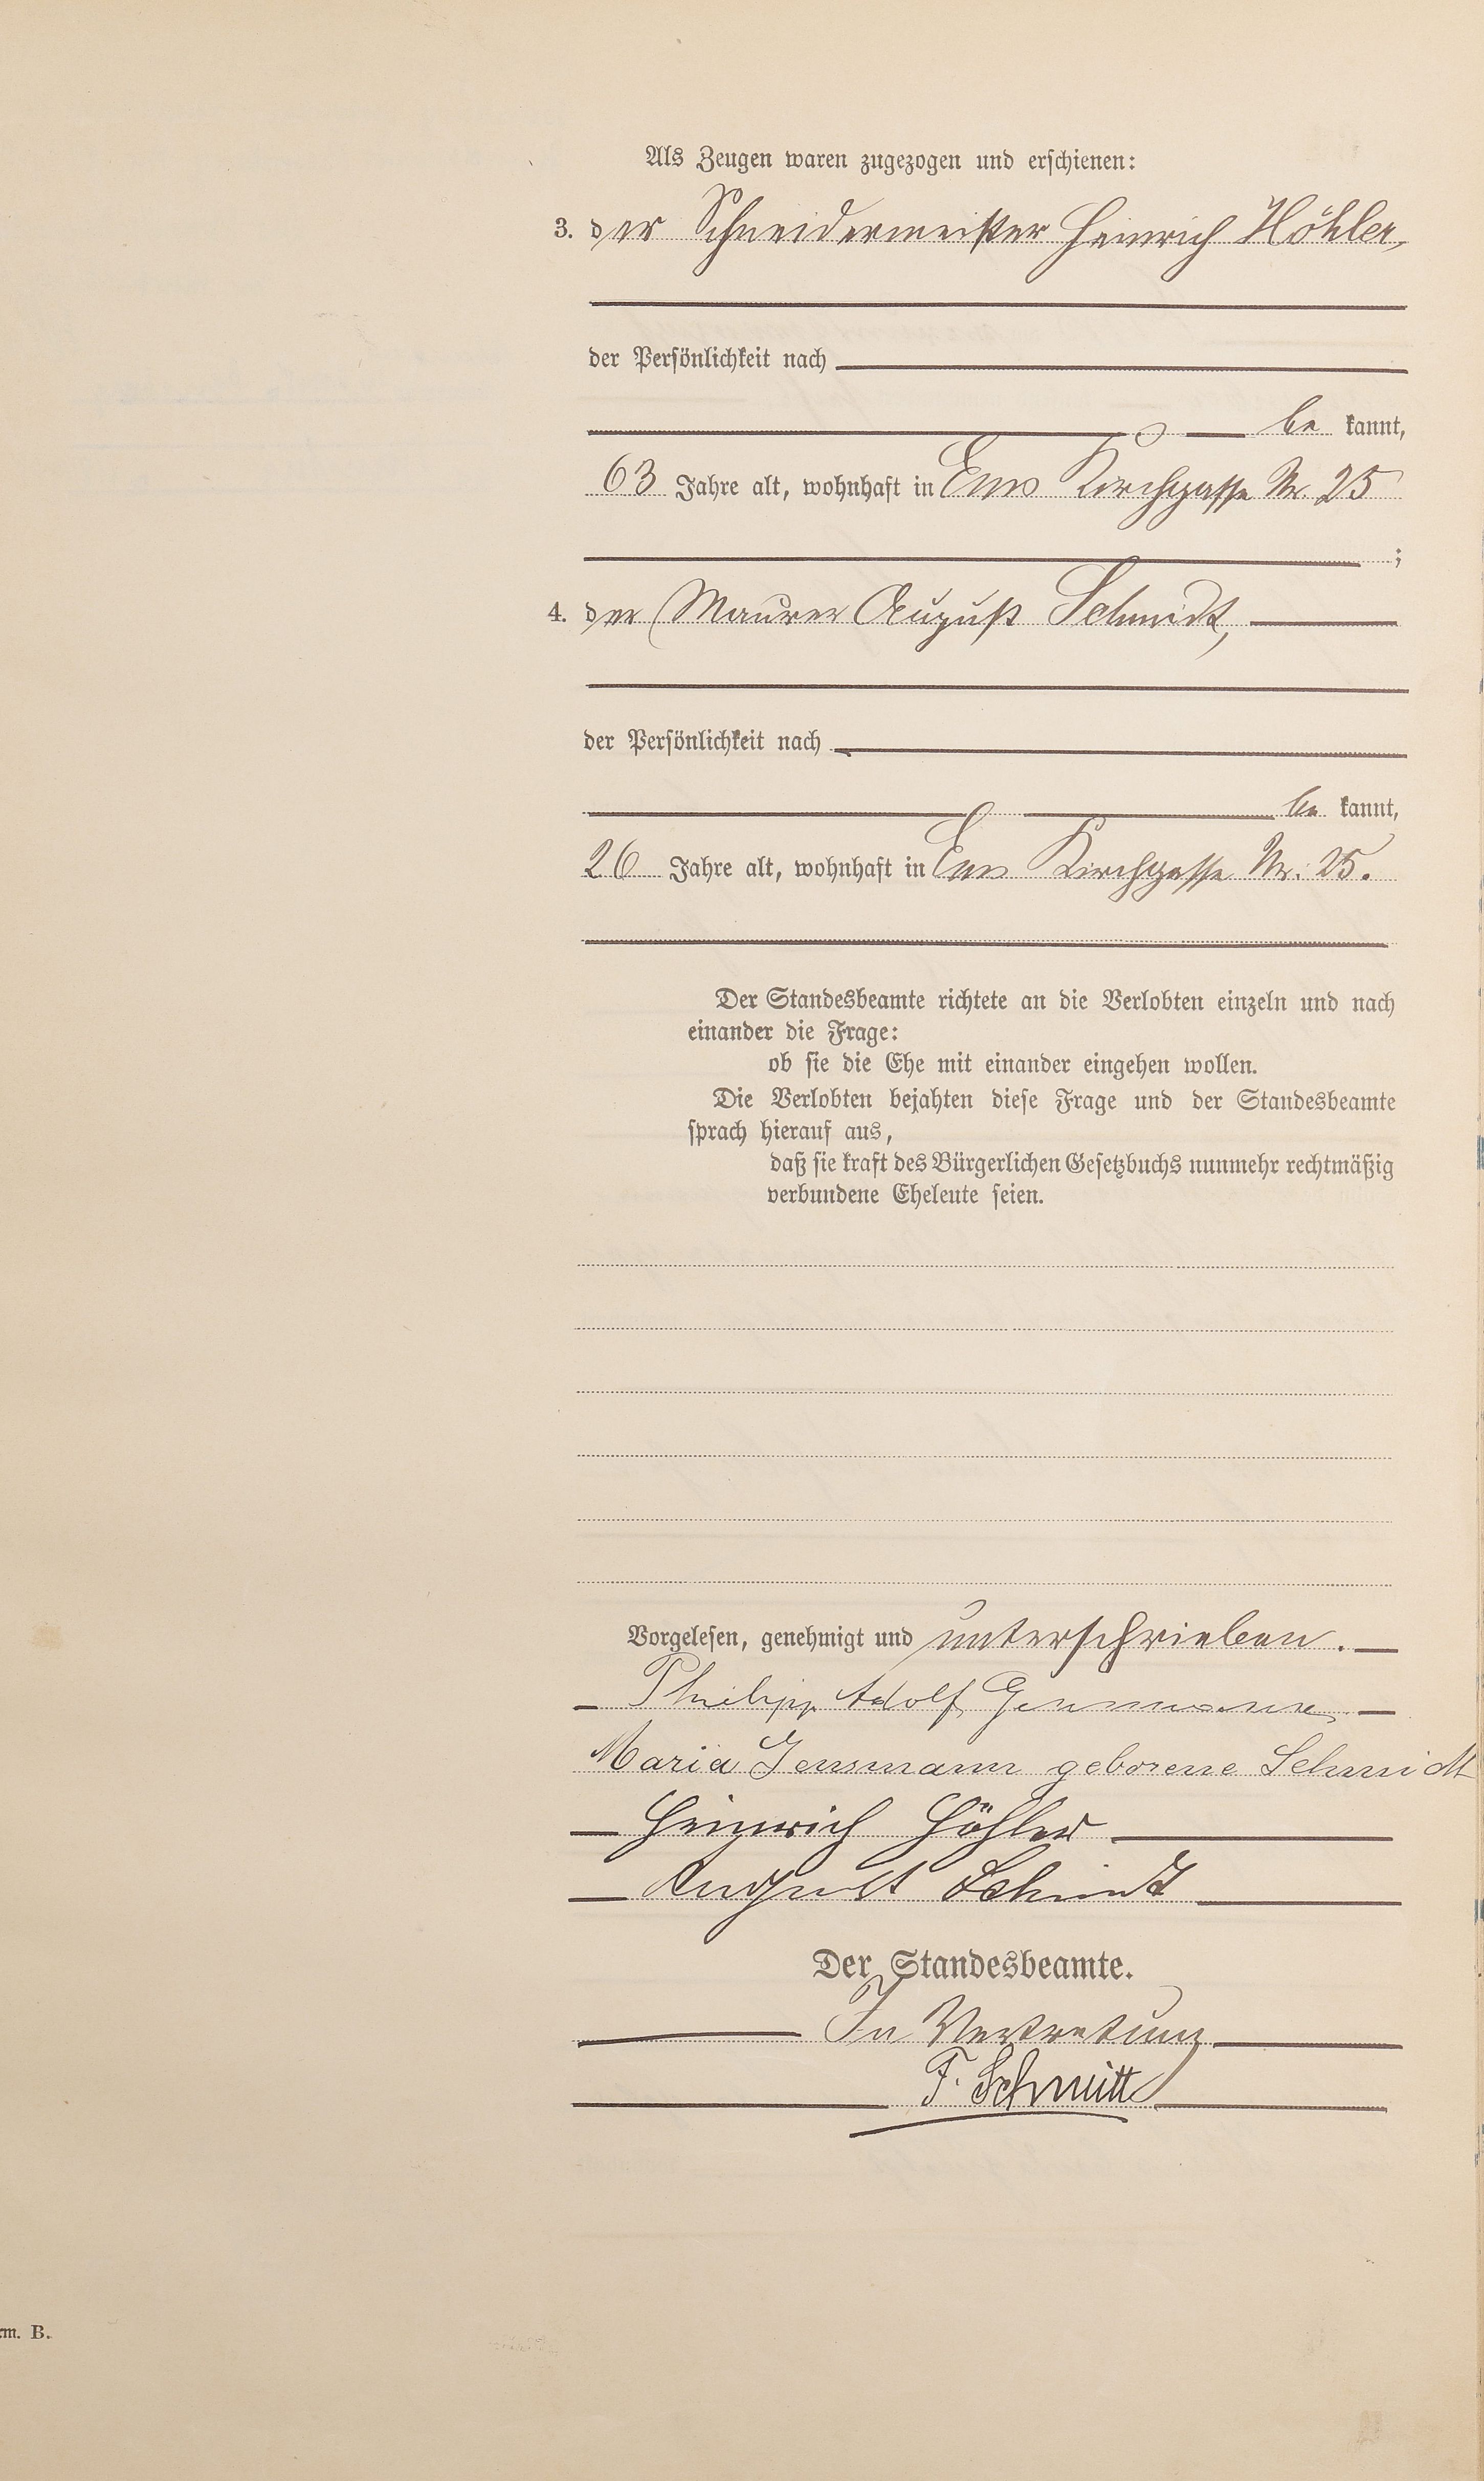 Als Zeugen waren zugezogen und erschienen:
3. der Schneidermeister Heinrich Höhler,
der Persönlichkeit nach
be kannt,
63 Jahre alt, wohnhaft in Ems Kirchgasse Nr. 25
;
4. der Maurer August Schmidt,
der Persönlichkeit nach
be kannt,
26 Jahre alt, wohnhaft in Ems Kirchgasse Nr. 25.
Der Standesbeamte richtete an die Verlobten einzeln und nach
einander die Frage:
ob sie die Ehe mit einander eingehen wollen.
Die Verlobten bejahten diese Frage und der Standesbeamte
sprach hierauf aus,
daß sie kraft des Bürgerlichen Gesetzbuchs nunmehr rechtmäßig
verbundene Eheleute seien.
Vorgelesen, genehmigt und unterschrieben.
Philipp Adolf
Maria geborene Schmidt
Heinrich Höhler
August Schmidt
Der Standesbeamte.
In Vertretung
F. Schmitt
rm. B.